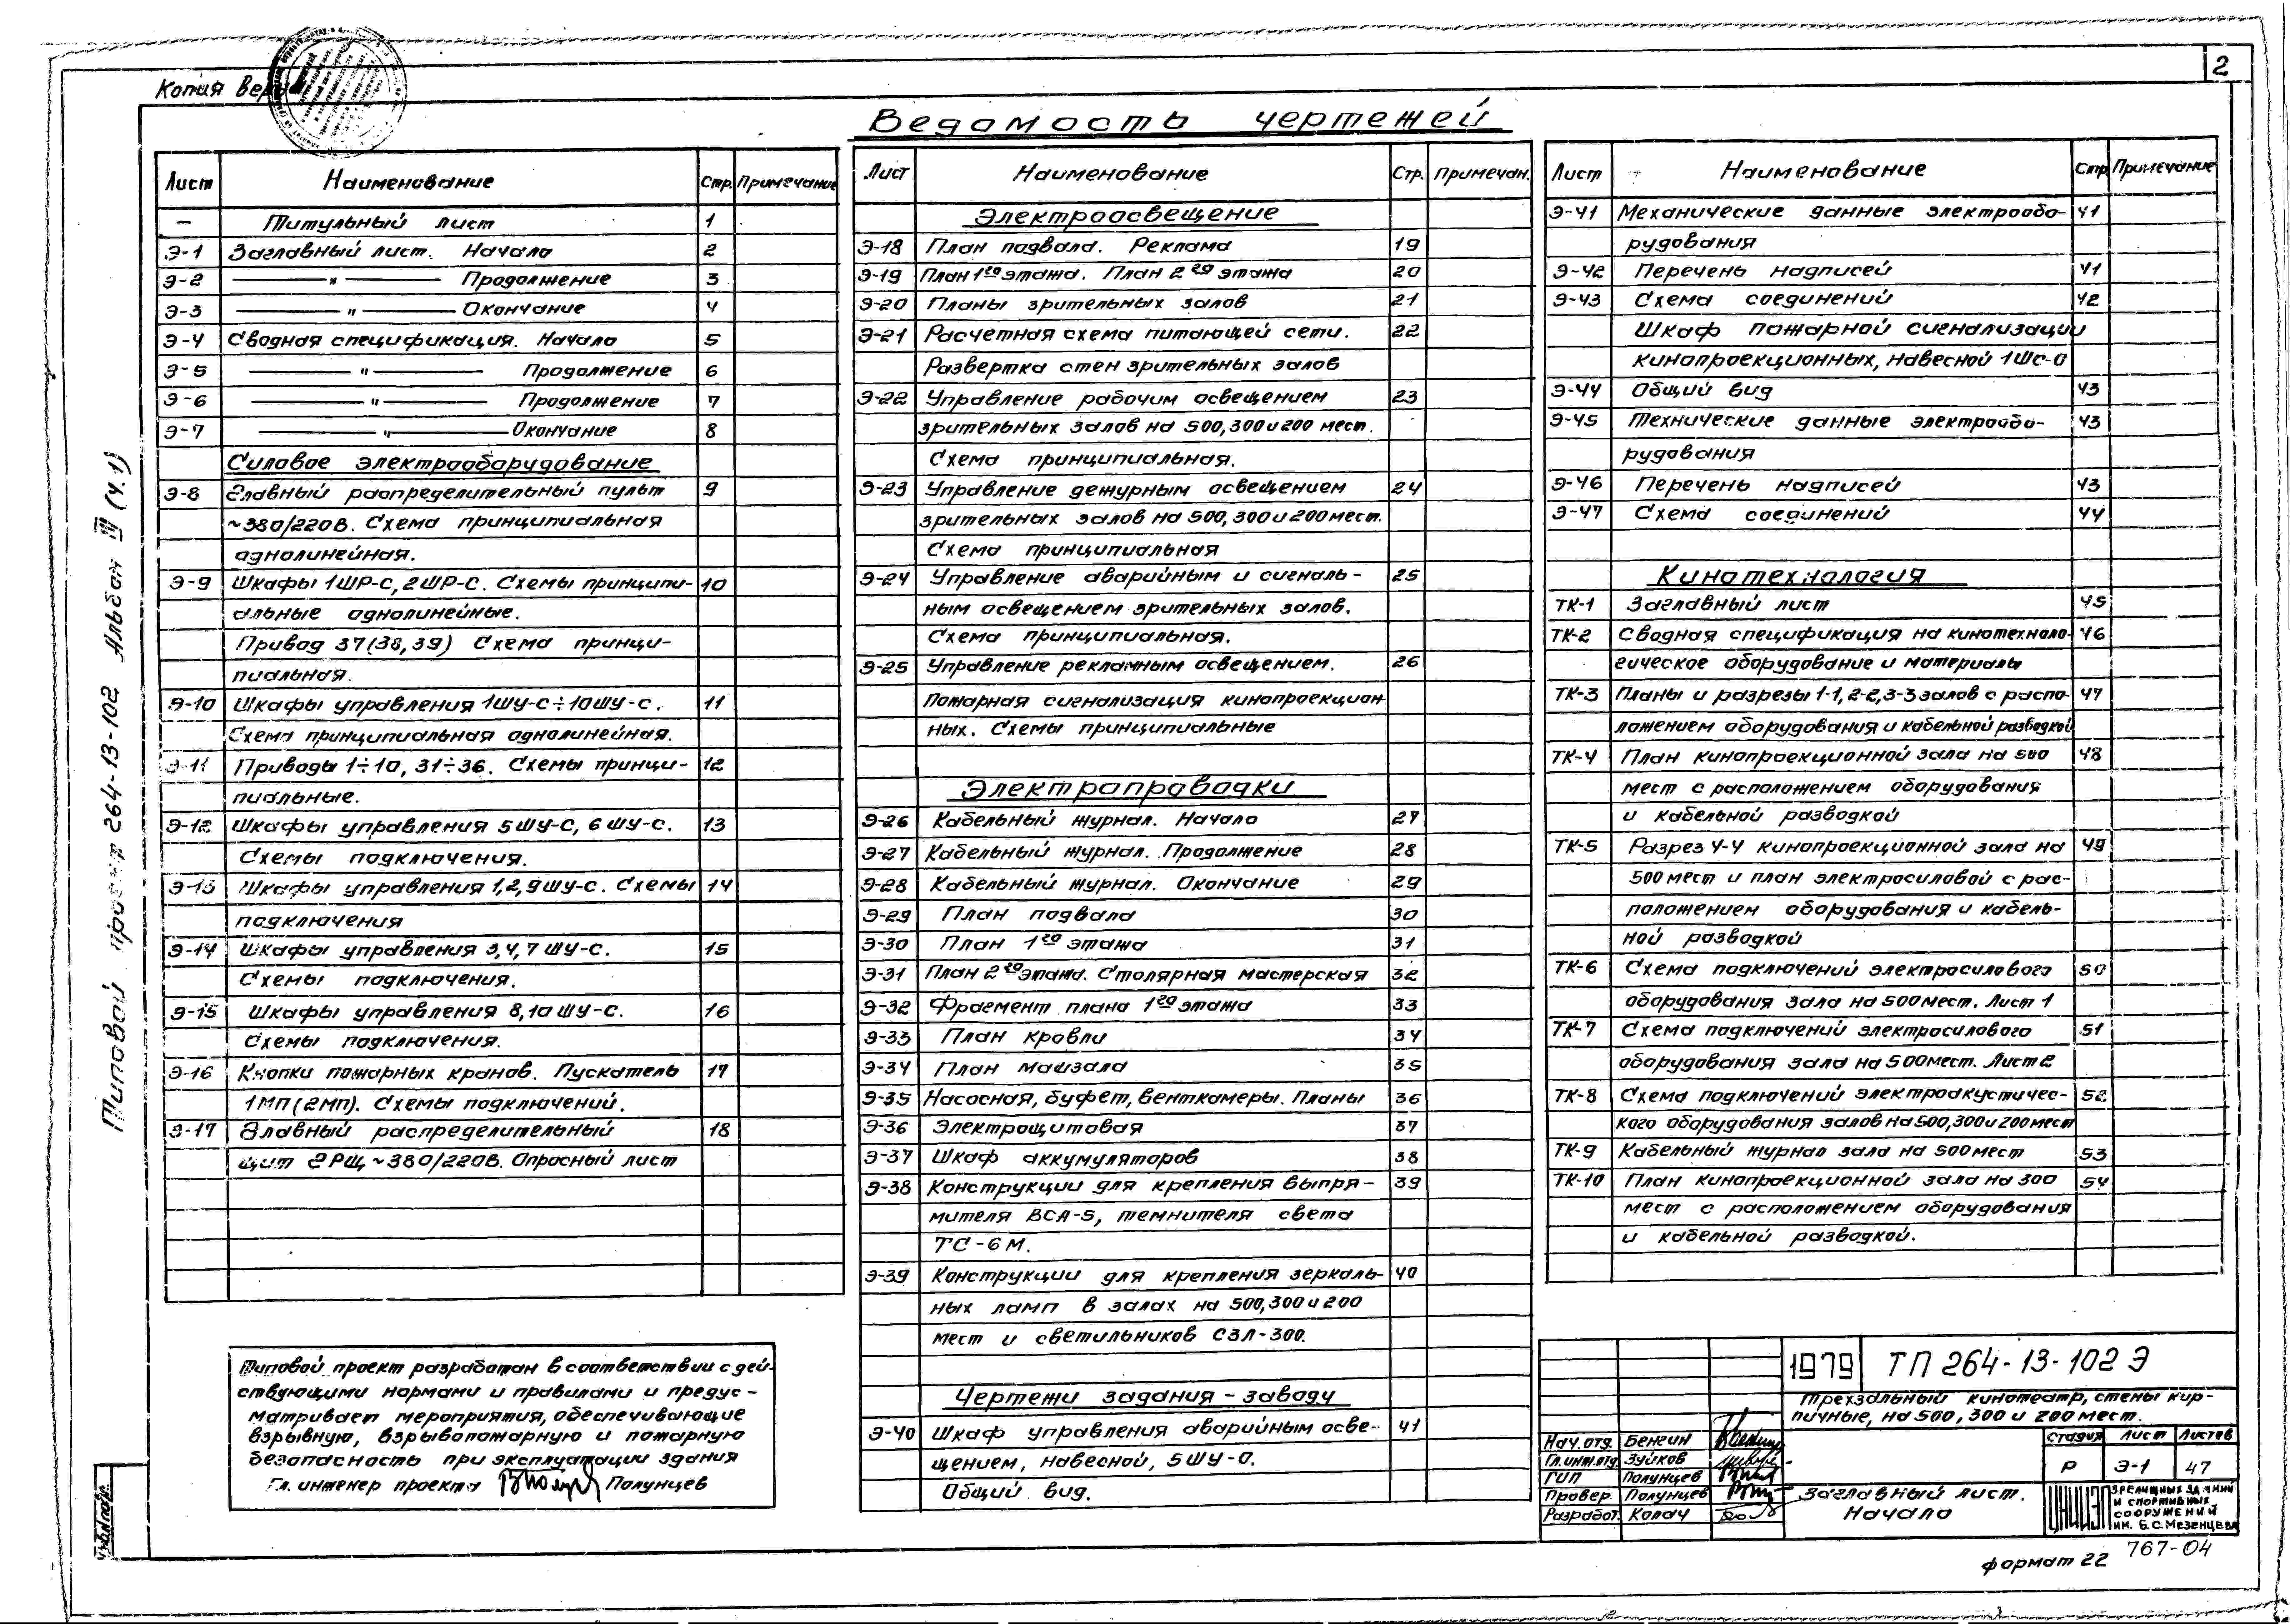 2
Копия вер
Ведомость чертежей
Типовой проект 264-13-102 Альбом III (ч.1)
Лист Наименование Стр. Примечание
— Титульный лист 1
Э-1 Заглавный лист. Начало 2
Э-2 —"— Продолжение 3
Э-3 —"— Окончание 4
Э-4 Сводная спецификация. Начало 5
Э-5 —"— Продолжение 6
Э-6 —"— Продолжение 7
Э-7 —"— Окончание 8
Силовое электрооборудование
Э-8 Главный распределительный пульт 9
~380/220В. Схема принципиальная
однолинейная.
Э-9 Шкафы 1ШР-С, 2ШР-С. Схемы принципи- 10
альные однолинейные.
Привод 37(38, 39) Схема принци-
пиальная.
Э-10 Шкафы управления 1ШУ-С÷10ШУ-С. 11
Схема принципиальная однолинейная.
Э-11 Приводы 1÷10, 31÷36. Схемы принци- 12
пиальные.
Э-12 Шкафы управления 5ШУ-С, 6ШУ-С. 13
Схемы подключения.
Э-13 Шкафы управления 1,2,9ШУ-С. Схемы 14
подключения
Э-14 Шкафы управления 3,4,7 ШУ-С. 15
Схемы подключения.
Э-15 Шкафы управления 8,10 ШУ-С. 16
Схемы подключения.
Э-16 Кнопки пожарных кранов. Пускатель 17
1МП(2МП). Схемы подключений.
Э-17 Главный распределительный 18
щит ГРЩ ~380/220В. Опросный лист
Лист Наименование Стр. Примечан.
Электроосвещение
Э-18 План подвала. Реклама 19
Э-19 План 1го этажа. План 2го этажа 20
Э-20 Планы зрительных залов 21
Э-21 Расчетная схема питающей сети. 22
Развертка стен зрительных залов
Э-22 Управление рабочим освещением 23
зрительных залов на 500,300 и 200 мест.
Схема принципиальная.
Э-23 Управление дежурным освещением 24
зрительных залов на 500, 300 и 200 мест.
Схема принципиальная
Э-24 Управление аварийным и сигналь- 25
ным освещением зрительных залов.
Схема принципиальная.
Э-25 Управление рекламным освещением. 26
Пожарная сигнализация кинопроекцион
ных. Схемы принципиальные
Электропроводки
Э-26 Кабельный журнал. Начало 27
Э-27 Кабельный журнал. Продолжение 28
Э-28 Кабельный журнал. Окончание 29
Э-29 План подвала 30
Э-30 План 1го этажа 31
Э-31 План 2го этажа. Столярная мастерская 32
Э-32 Фрагмент плана 1го этажа 33
Э-33 План кровли 34
Э-34 План машзала 35
Э-35 Насосная, буфет, венткамеры. Планы 36
Э-36 Электрощитовая 37
Э-37 Шкаф аккумуляторов 38
Э-38 Конструкции для крепления выпря- 39
мителя ВСА-5, темнителя света
ТС-6М.
Э-39 Конструкции для крепления зеркаль- 40
ных ламп в залах на 500,300 и 200
мест и светильников СЗЛ-300.
Чертежи задания - заводу
Э-40 Шкаф управления аварийным осве- 41
щением, навесной, 5ШУ-О.
Общий вид.
Лист Наименование Стр Примечание
Э-41 Механические данные электрообо- 41
рудования
Э-42 Перечень надписей 41
Э-43 Схема соединений 42
Шкаф пожарной сигнализации
кинопроекционных, навесной 1ШС-О
Э-44 Общий вид 43
Э-45 Технические данные электрообо- 43
рудования
Э-46 Перечень надписей 43
Э-47 Схема соединений 44
Кинотехнология
ТК-1 Заглавный лист 45
ТК-2 Сводная спецификация на кинотехноло- 46
гическое оборудование и материалы
ТК-3 Планы и разрезы 1-1, 2-2, 3-3 залов с распо- 47
ложением оборудования и кабельной разводкой
ТК-4 План кинопроекционной зала на 500 48
мест с расположением оборудования
и кабельной разводкой
ТК-5 Разрез 4-4 кинопроекционной зала на 49
500 мест и план электросиловой с рас-
положением оборудования и кабель-
ной разводкой
ТК-6 Схема подключений электросилового 50
оборудования зала на 500 мест. Лист 1
ТК-7 Схема подключений электросилового 51
оборудования зала на 500мест. Лист 2
ТК-8 Схема подключений электроакустичес- 52
кого оборудования залов на 500, 300 и 200 мест
ТК-9 Кабельный журнал зала на 500 мест 53
ТК-10 План кинопроекционной зала на 300 54
мест с расположением оборудования
и кабельной разводкой.
Типовой проект разработан в соответствии с дей-
ствующими нормами и правилами и предус-
матривает мероприятия, обеспечивающие
взрывную, взрывопожарную и пожарную
безопасность при эксплуатации здания
Гл. инженер проекта Полунцев
1979 ТП 264-13-102 Э
Трехзальный кинотеатр, стены кир-
пичные, на 500, 300 и 200 мест.
Нач.отд. Бенгин
Гл.инж.отд. Зуйков
ГИП Полунцев
Провер. Полунцев
Разработ. Колач
стадия Лист Листов
Р Э-1 47
Заглавный лист.
Начало
ЦНИИЭП
зрелищных зданий
и спортивных
сооружений
им. Б.С.Мезенцева
767-04
формат 22